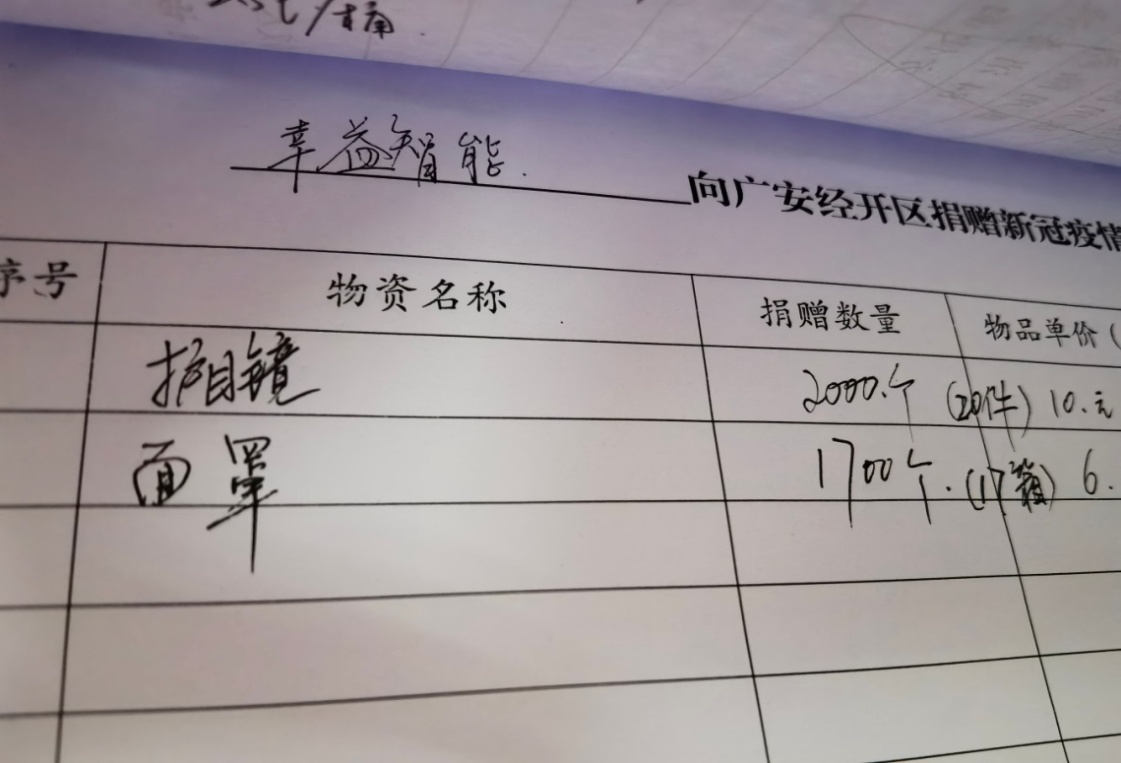 幸益智能.
向广安经开区捐赠新冠疫情
序号 物资名称 捐赠数量 物品单价（
护目镜 2000.个 (20件) 10.元
面罩 1700个.(17箱) 6.